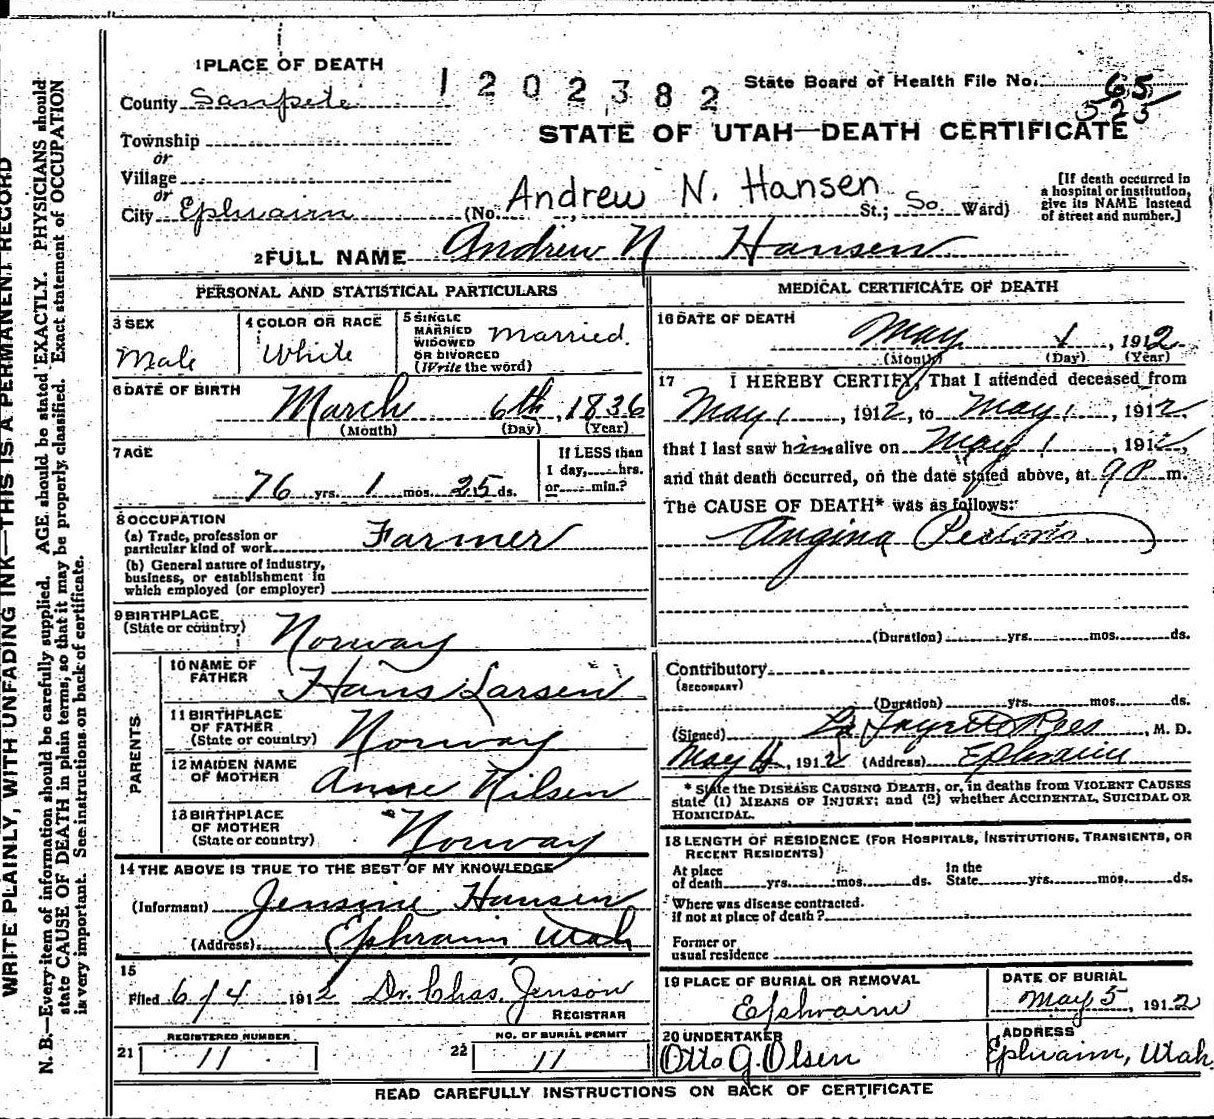 1 PLACE OF DEATH
1202382
State Board of Health File No. 65
525
County Sanpete
STATE OF UTAH—DEATH CERTIFICATE
Township
or
Village
or
City Ephraim (No. , St.; So Ward)
Andrew N. Hansen
[If death occurred in
a hospital or institution,
give its NAME instead
of street and number.]
2 FULL NAME Andrew N Hansen
PERSONAL AND STATISTICAL PARTICULARS
3 SEX
Male
4 COLOR OR RACE
White
5 SINGLE
MARRIED
WIDOWED
OR DIVORCED
(Write the word)
Married.
6 DATE OF BIRTH
March 6th, 1836
(Month) (Day) (Year)
7 AGE
76 yrs. 1 mos. 25 ds.
If LESS than
1 day, hrs.
or min.?
8 OCCUPATION
(a) Trade, profession or
particular kind of work Farmer
(b) General nature of industry,
business, or establishment in
which employed (or employer)
9 BIRTHPLACE
(State or country) Norway
PARENTS
10 NAME OF
FATHER Hans Larsen
11 BIRTHPLACE
OF FATHER
(State or country) Norway
12 MAIDEN NAME
OF MOTHER Anne Nilsen
13 BIRTHPLACE
OF MOTHER
(State or country) Norway
14 THE ABOVE IS TRUE TO THE BEST OF MY KNOWLEDGE
(Informant) Jensine Hansen
(Address) Ephraim Utah
15
Filed 6/4 1912 Dr. Chas. Jenson
REGISTRAR
REGISTERED NUMBER
21 11
NO. OF BURIAL PERMIT
22 11
MEDICAL CERTIFICATE OF DEATH
16 DATE OF DEATH
May 1, 1912
(Month) (Day) (Year)
17 I HEREBY CERTIFY, That I attended deceased from
May 1, 1912, to May 1, 1912,
that I last saw him alive on May 1, 1912,
and that death occurred, on the date stated above, at 9 P. m.
The CAUSE OF DEATH* was as follows:
Angina Pectoris
(Duration) yrs. mos. ds.
Contributory
(SECONDARY)
(Duration) yrs. mos. ds.
(Signed) La Fayette Rees, M. D.
May 4, 1912 (Address) Ephraim
* State the DISEASE CAUSING DEATH, or, in deaths from VIOLENT CAUSES
state (1) MEANS OF INJURY; and (2) whether ACCIDENTAL, SUICIDAL OR
HOMICIDAL.
18 LENGTH OF RESIDENCE (FOR HOSPITALS, INSTITUTIONS, TRANSIENTS, OR
RECENT RESIDENTS)
At place
of death yrs. mos. ds. In the
State yrs. mos. ds.
Where was disease contracted.
if not at place of death?
Former or
usual residence
19 PLACE OF BURIAL OR REMOVAL
Ephraim
DATE OF BURIAL
May 5, 1912
20 UNDERTAKER
Otto G. Olsen
ADDRESS
Ephraim, Utah.
READ CAREFULLY INSTRUCTIONS ON BACK OF CERTIFICATE
WRITE PLAINLY, WITH UNFADING INK—THIS IS A PERMANENT RECORD
N. B.—Every item of information should be carefully supplied. AGE should be stated EXACTLY. PHYSICIANS should
state CAUSE OF DEATH in plain terms, so that it may be properly classified. Exact statement of OCCUPATION
is very important. See instructions on back of certificate.